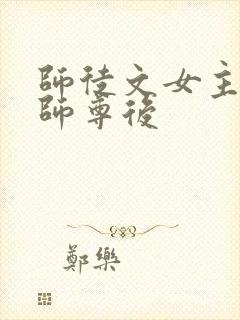 師徒文女主
師尊後
鄭樂